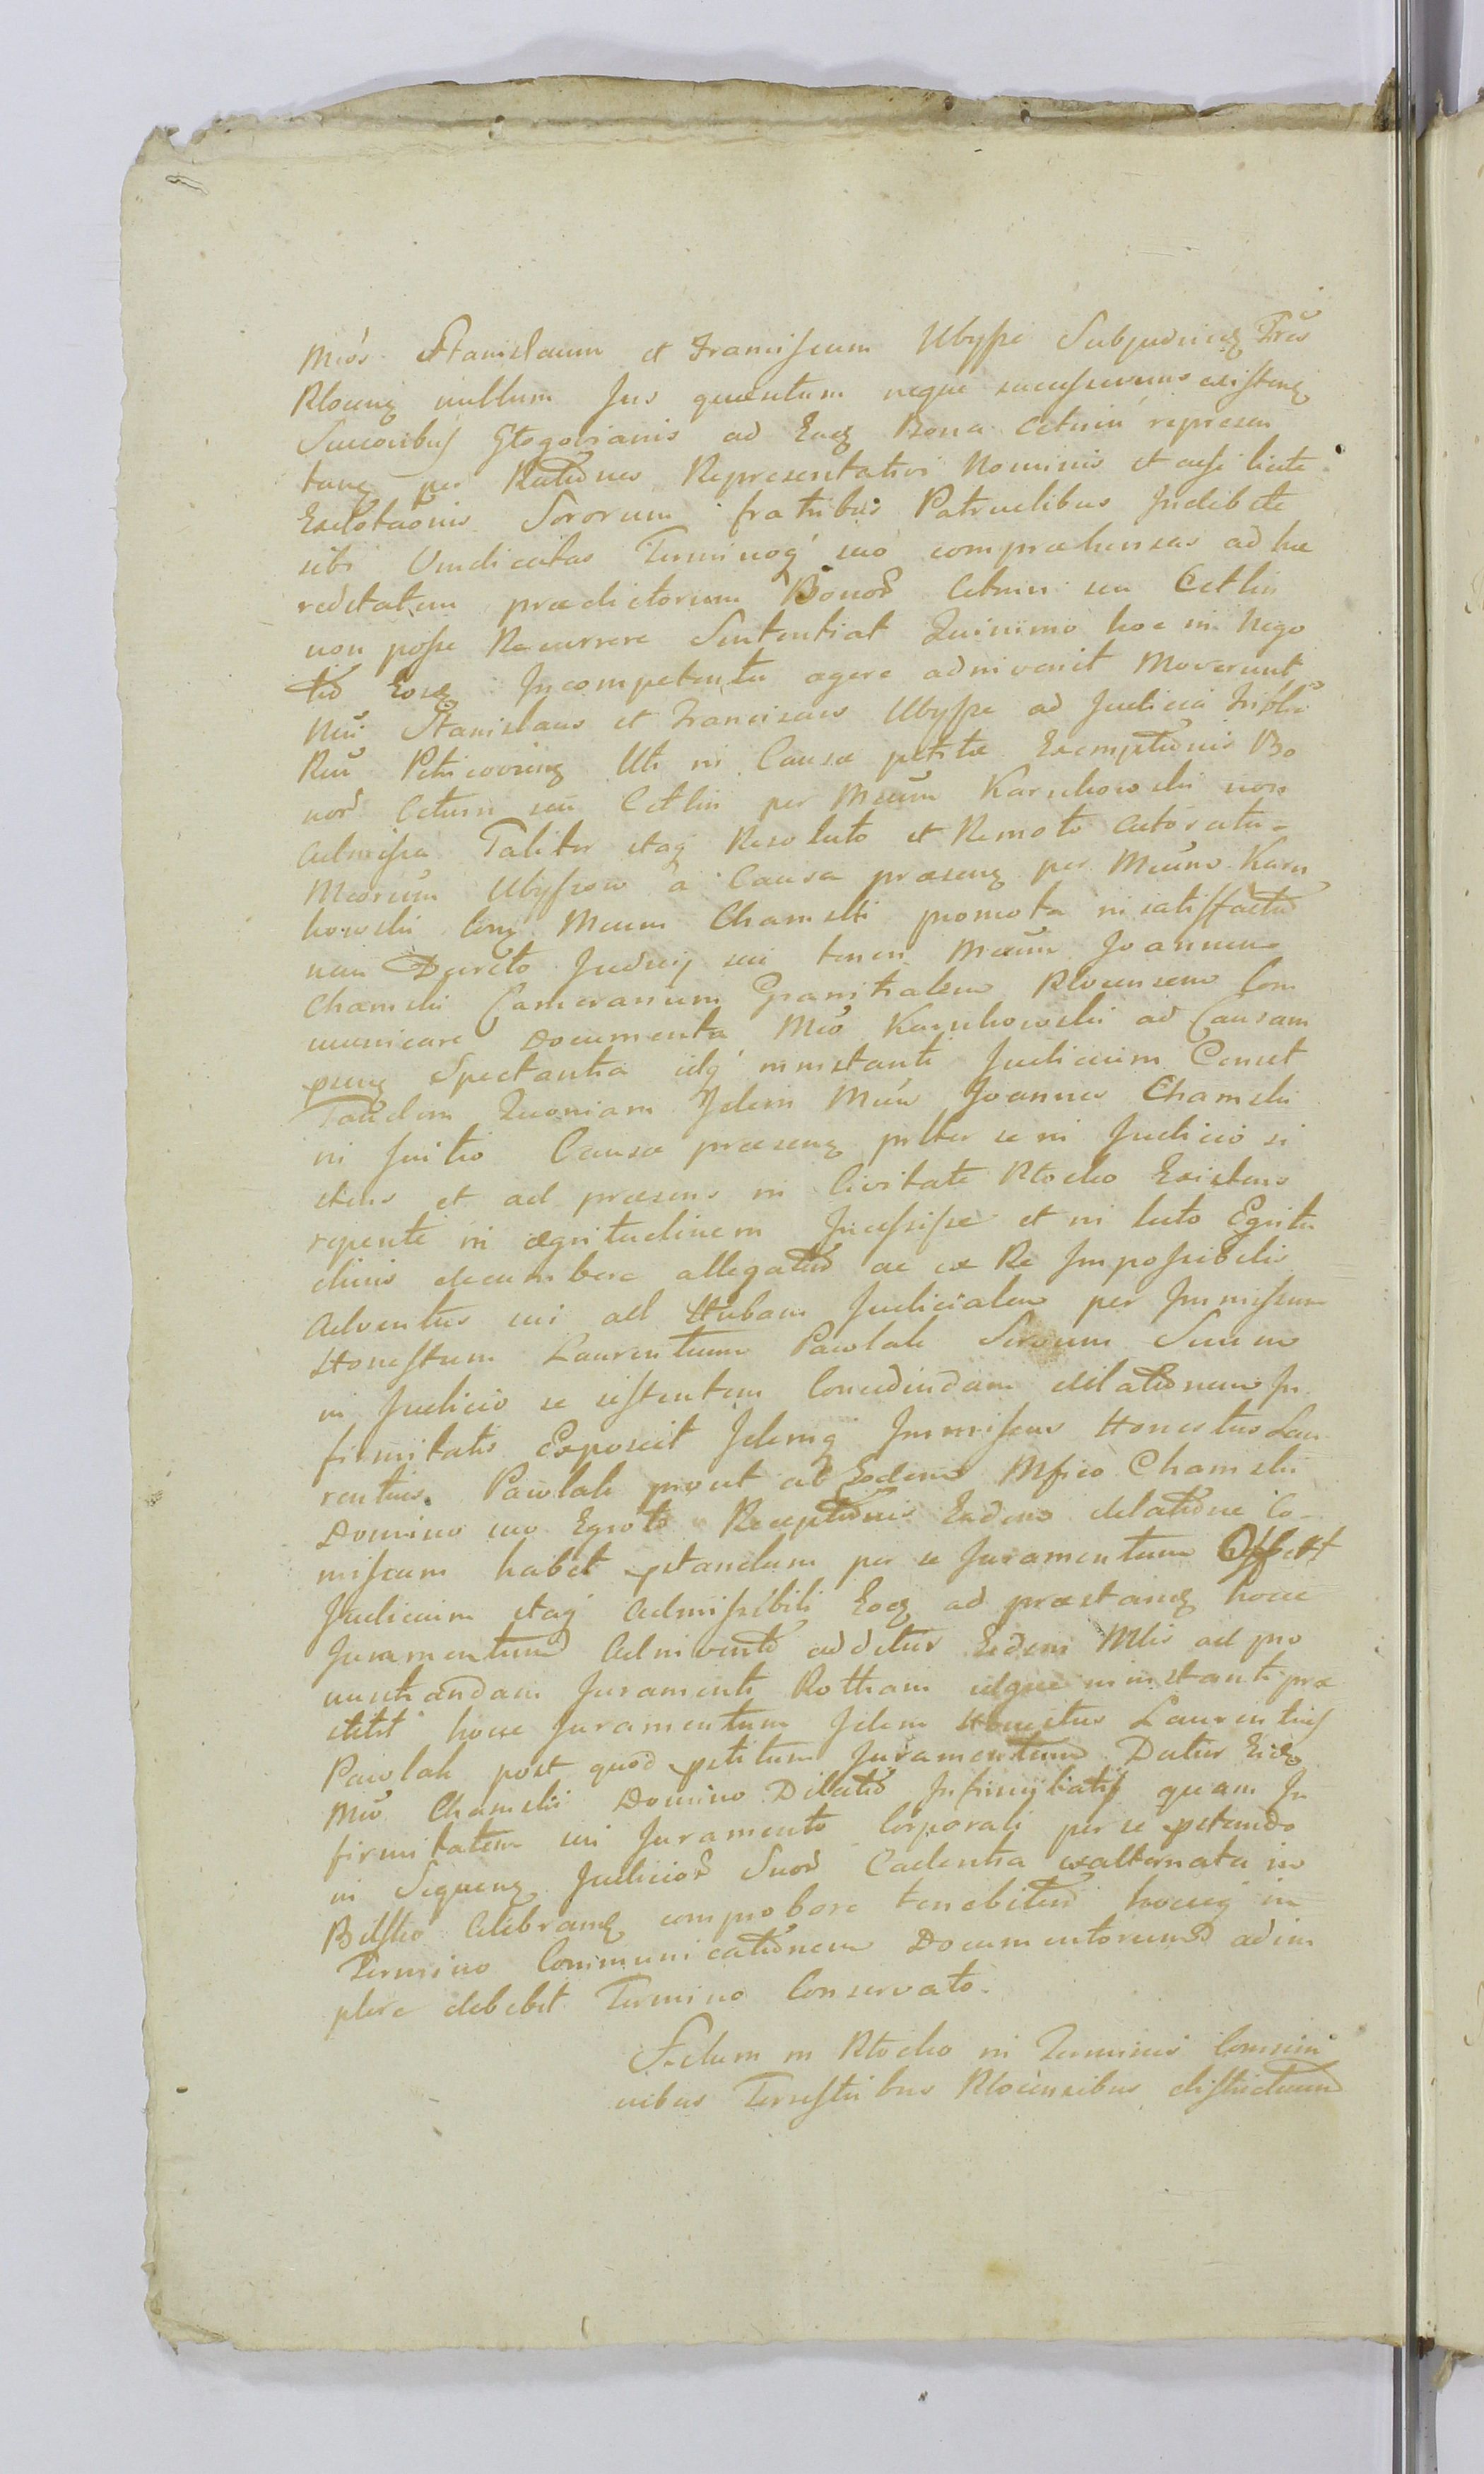 Mcós Stanislaum et Franciscum Ubysze Subjudiceʒ Trěs
Plocenʒ nullum Jus quæsitum neque successivum existenʒ
Succoribus Głogovianis ad Eaeʒ Bona Cetnin represen
tanʒ per Rutiones Representativi Nominis et
Exdotaõnis Sororum fratribus Patruelibus Indebite
sibi Vindicatas Terminoq́ suo compræhensas ad hæ
reditatem prædictorum Bonor̃ Cetnin seu Cetlin
non posse Recurrere Sententiat Quinimo hoc in Nego
tio Eosʒ Incompetenter agere adinvenit Moverunt
Mci Stanislaus et Franciscus Ubysze ad Judicia Tribłia
Rni Petricovienʒ Uti in Causa petitæ Exemptionis Bo
nor̃ Cetnin seu Cetlin per Mcum Karnkowski non
admissa Taliter itaq́ Resoluto et Remoto
Mcorum Ubyszow a Causa præsenʒ per Mcum Karn
kowski Conʒ Mcum Chamski promota in satisffactio
nem Decreto Judicij sui tenen Mcum Joannem
Chamski Camerarium Granitialem Plocensem Com
municare Documenta Mco Karnkowski ad Causam
psenʒ Spectantia idq́ ininstanti Judicium Censet
Tandem Quoniam Idem Mcus Joannes Chamski
in Initio Causæ præsenʒ prltter se in Judicio si
stens et ad præsens in Civitate Płocko Existens
repente in ægritudinem Incessisse et in lecto Egritu
dinis decumbere allegatur ac ex Re Impossibilis
adventus sui ad Stubam Judicialem per Immissum
Honestum Laurentium Pawlak Servum Suum
in Judicio se sistentem Concedendam dilationem In
firmitatis Exposcit Idemq́ Immissus Honestus Lau
rentius Pawlak prout ab Eodem Mfico Chamski
Domino suo Egroto Receptionis Eadem dilatione Co-
missum habet pstandum per se Juramentum Offert
Judicium itaq́ admissibili Eoeʒ ad præstanʒ hocce
Juramentum adinvento additur Eidem Mtis ad pro
nunciandam Juramenti Rotham idque ininstanti præ
stitit hocce Juramentum Idem Honestus Laurentius
Pawlak post quod pstitum Juramentum Datur Eidem
Mco Chamski Domino Dilatio Infirmitatis quam In
firmitatem sui Juramento Corporali per se pstando
in Sequenʒ Judicior̃ Suor̃ Cadentia exalternata in
Bielsko Celebranʒ comprobare tenebitur hoceq́ in
Termino Communicationem Documentorum adim
plere debebit Termino Conservato.
Actum in Płocko in Terminis Commu
nibus Terrestribus Plocensibus districtuum